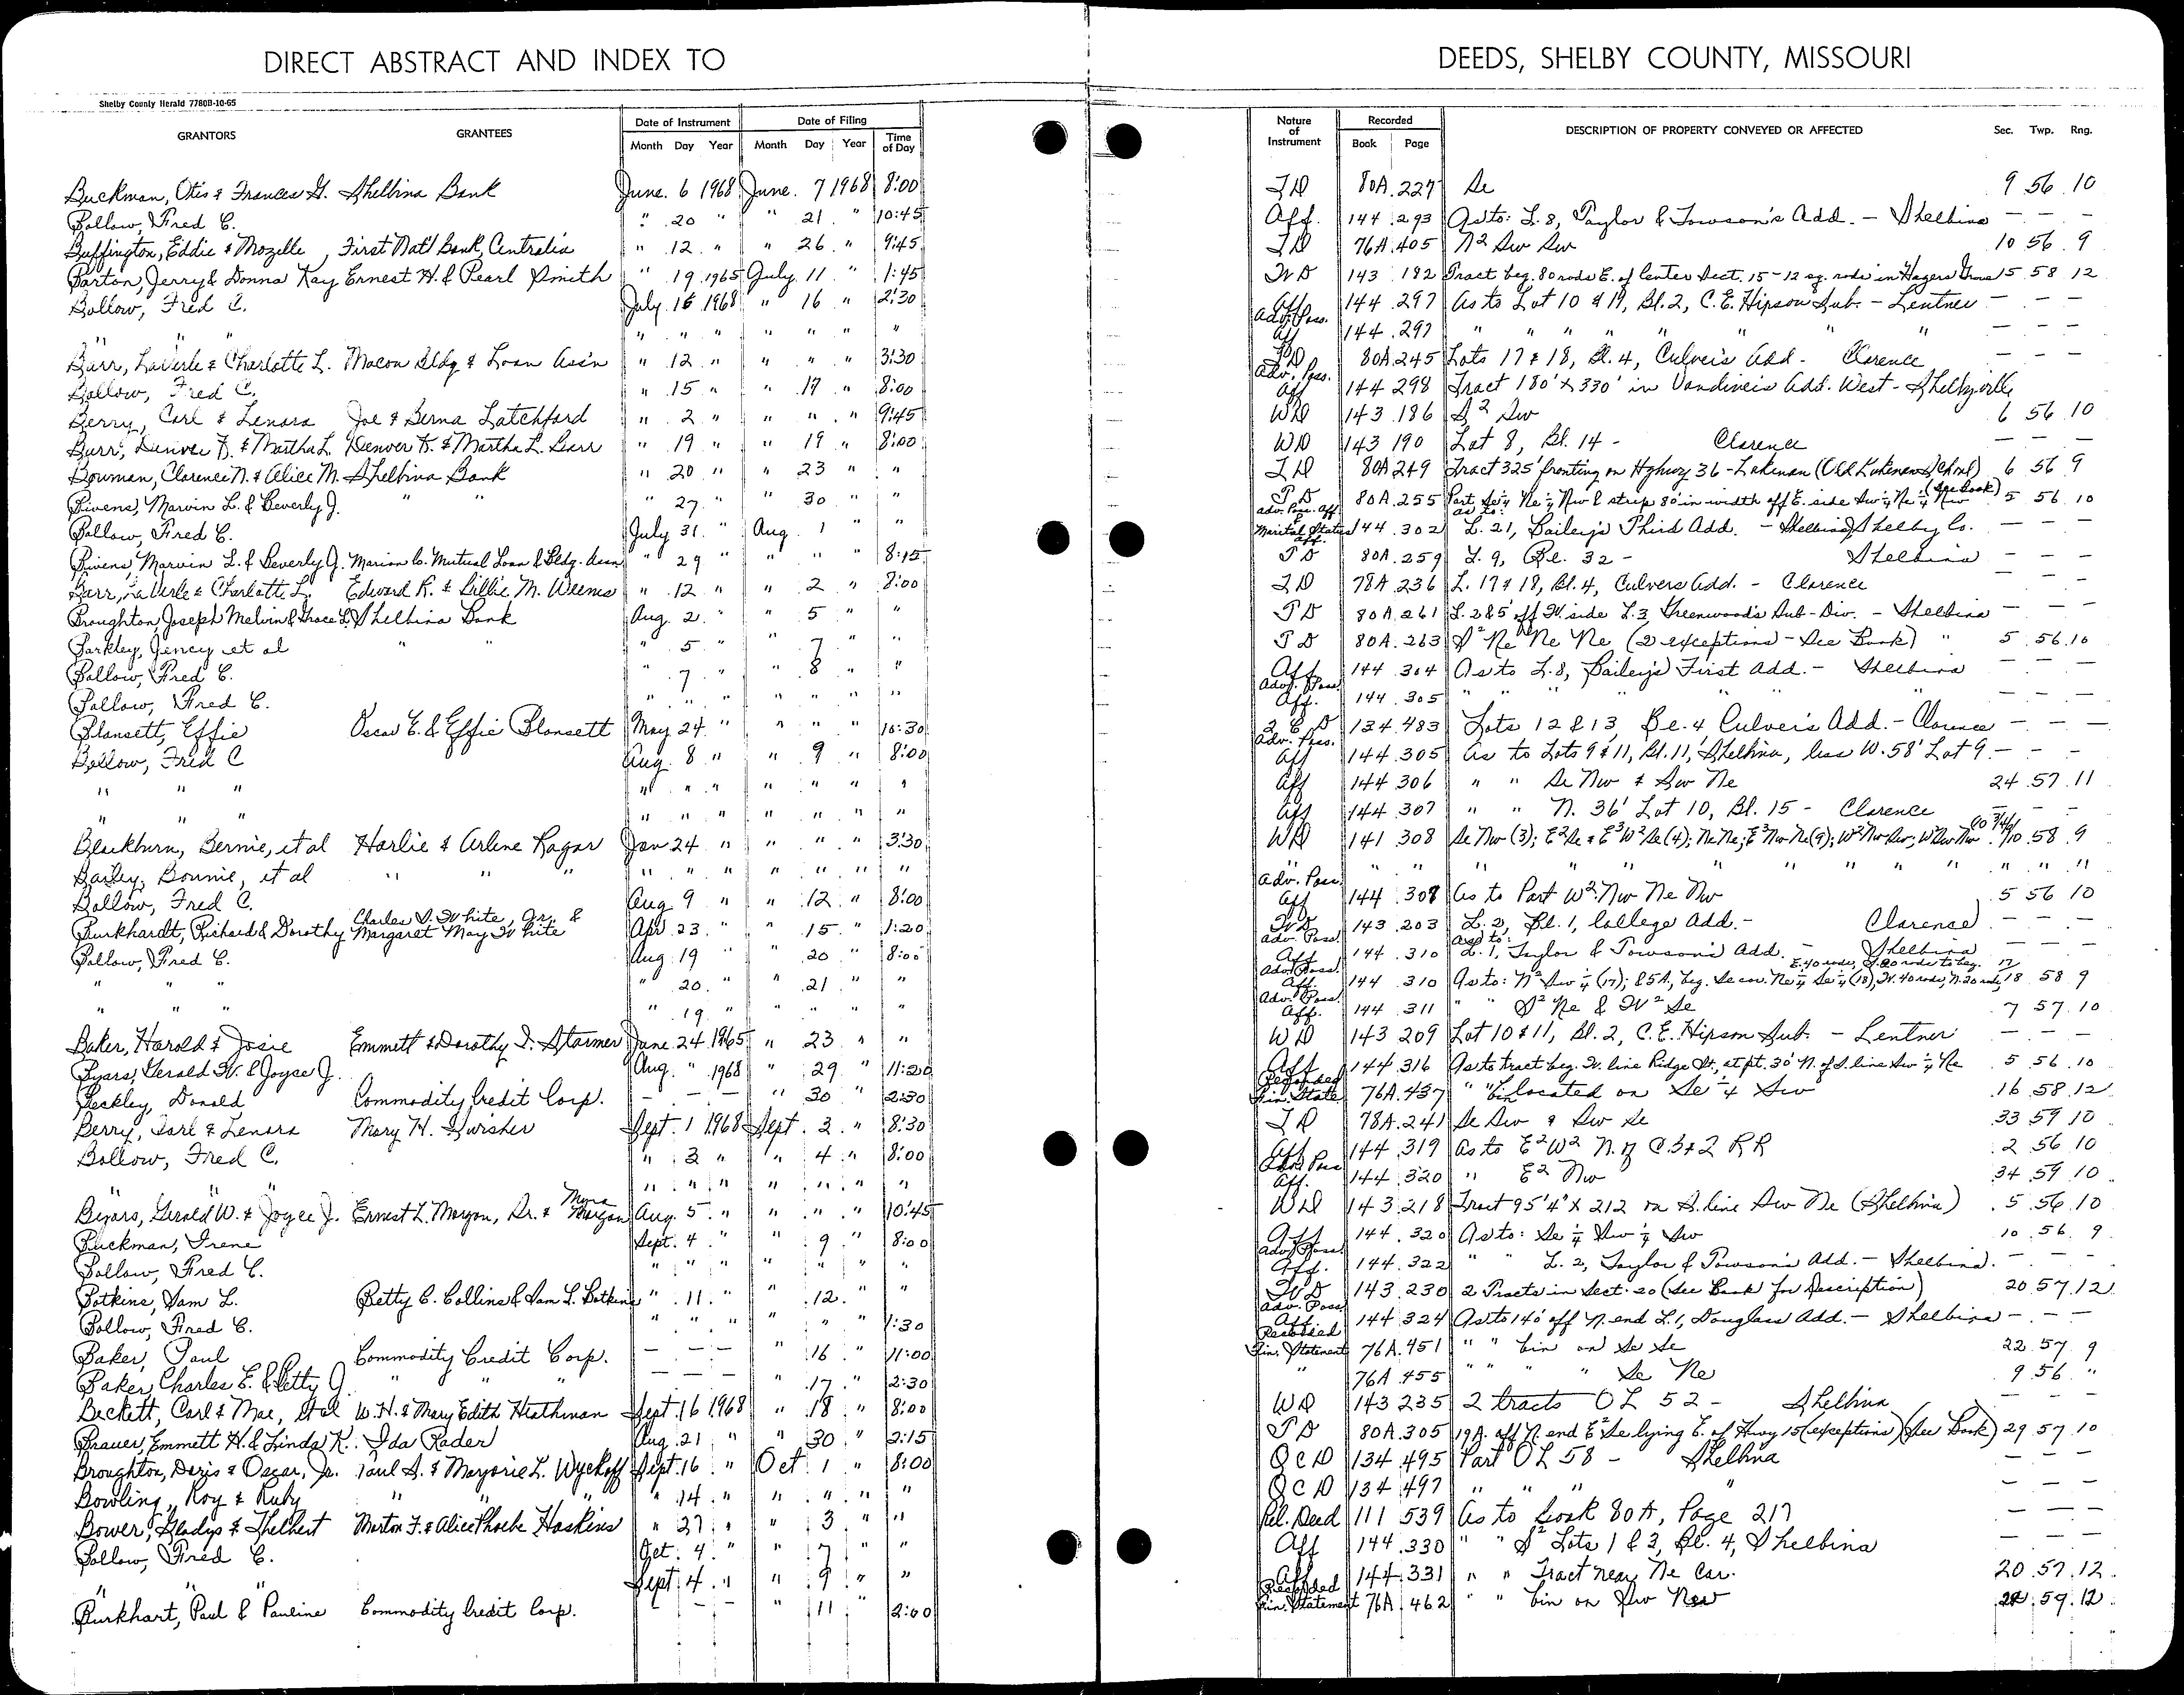 DIRECT ABSTRACT AND INDEX TO
DEEDS, SHELBY COUNTY, MISSOURI
Shelby County Herald 7780B-10-65
GRANTORS GRANTEES Date of Instrument Month Day Year Date of Filing Month Day Year Time of Day Nature of Instrument Recorded Book Page DESCRIPTION OF PROPERTY CONVEYED OR AFFECTED Sec. Twp. Rng.
Buckman, Otis & Frances G. Shelbina Bank June 6 1968 June 7 1968 8:00 TD 80A 227 Se 9 56 10
Bollow, Fred C. " 20 " " 21 " 10:45 Aff. 144 293 As to: L. 8, Taylor & Towson's Add. - Shelbina - - -
Buffington, Eddie & Mozelle, First Nat'l Bank, Centralia " 12 " " 26 " 9:45 TD 76A 405 N2 Sw Sw 10 56 9
Barton, Jerry & Donna Kay Ernest H. & Pearl Smith " 19 1965 July 11 " 1:45 WD 143 182 Tract beg. 80 rods E. of Center Sect. 15 - 12 sq. rods in Hagers Grove 15 58 12
Bollow, Fred C. July 15 1968 " 16 " 2:30 Aff 144 297 As to Lot 10 & 19, Bl. 2, C.E. Hipson Sub. - Lentner - - -
" " " " " " " " " " Adv. Poss. Aff 144 297 " " " " " " " " - - -
Barr, LaVerle & Charlotte L. Macon Bldg & Loan Ass'n " 12 " " " " 3:30 TD 80A 245 Lots 17 & 18, Bl. 4, Culver's Add - Clarence - - -
Bollow, Fred C. " 15 " " 17 " 8:00 Adv. Poss. Aff 144 298 Tract 180' x 330' in Vandiver's Add. West - Shelbyville
Berry, Carl & Lenora Joe & Berna Latchford " 2 " " " " 9:45 WD 143 186 S2 Sw 6 56 10
Burr, Denver F. & Martha L. Denver F. & Martha L. Barr " 19 " " 19 " 8:00 WD 143 190 Lot 8, Bl. 14 - Clarence - - -
Bowman, Clarence N. & Alice M. Shelbina Bank " 20 " " 23 " " TD 80A 249 Tract 325' fronting on Highway 36 - Lakenan (Old Lakenan School) 6 56 9
Bivens, Marvin L. & Beverly J. " " " 27 " " 30 " " TD 80A 255 Part Se¼ Ne¼ Nw & strip 80' in width off E. side Sw¼ Ne¼ Nw (See Book) 5 56 10
Bollow, Fred C. July 31 " Aug. 1 " " Adv. Poss. Aff. & Marital Status Aff. 144 302 as to: L. 21, Bailey's Third Add. - Shelbina, Shelby Co. - - -
Bivens, Marvin L. & Beverly J. Marion Co. Mutual Loan & Bldg. Assn " 29 " " " " 8:15 TD 80A 259 L. 9, Bl. 32 - Shelbina - - -
Barr, LaVerle & Charlotte L. Edward R. & Lillie M. Weems " 12 " " 2 " 8:00 TD 78A 236 L. 17 & 18, Bl. 4, Culvers Add. - Clarence
Broughton, Joseph Melvin & Grace L. Shelbina Bank Aug. 2 " " 5 " " TD 80A 261 L. 2 & 5 off W. side L. 3 Greenwood's Sub-Div. - Shelbina - - -
Barkley, Gency et al " " " 5 " " 7 " " TD 80A 263 S2 Ne Ne Ne (2 exceptions - See Book) " 5 56 10
Bollow, Fred C. " 7 " " 8 " " Aff. 144 304 As to L. 8, Bailey's First Add. - Shelbina - - -
Bollow, Fred C. " " " " " " " Adv. Poss. Aff. 144 305 " " " " " " - - -
Blansett, Effie Oscar E. & Effie Blansett May 24 " " " " 10:30 QCD 134 483 Lots 12 & 13, Bl. 4 Culver's Add. - Clarence - - -
Bollow, Fred C Aug. 8 " " 9 " 8:00 Adv. Poss. Aff 144 305 As to Lots 9 & 11, Bl. 11, Shelbina, less W. 58' Lot 9 - - -
" " " " " " " " " " Aff 144 306 " " Se Nw & Sw Ne 24 57 11
" " " " " " " " " " Aff 144 307 " " N. 36' Lot 10, Bl. 15 - Clarence - - -
Blackburn, Bernie, et al Harlie & Arlene Ragar Jan 24 " " " " 3:30 WD 141 308 Se Nw (3); E2 Se & E3 W2 Se (4); Ne Ne; E3 Nw Ne (9); W2 Nw Sw; 10 58 9
Bailey, Bonnie, et al " " " " " " " " " " " " " " " " " " " " " "
Bollow, Fred C. Aug 9 " " 12 " 8:00 Adv. Poss. Aff 144 308 As to Part W2 Nw Ne Nw 5 56 10
Burkhardt, Richard & Dorothy Charles S. White, Jr. & Margaret May White Apr 23 " " 15 " 1:20 WD 143 203 L. 2, Bl. 1, College Add. - Clarence - - -
Bollow, Fred C. Aug 19 " " 20 " 8:00 Adv. Poss. Aff. 144 310 As to: L. 1, Taylor & Towson's Add. - Shelbina - - -
" " " " 20 " " 21 " " Adv. Poss. Aff. 144 310 As to: N2 Sw¼ (17); & 5A, beg. Se cor. Ne¼ Se¼ (18), W. 40 rods, N. 20 rods, E. 40 rods, S. 20 rods to beg. 17 18 58 9
" " " " 19 " " " " " Adv. Poss. Aff. 144 311 " " S2 Ne & W2 Se 7 57 10
Baker, Harold & Josie Emmett & Dorothy I. Starmer June 24 1965 " 23 " " WD 143 209 Lot 10 & 11, Bl. 2, C.E. Hipson Sub. - Lentner - - -
Byars, Gerald W. & Joyce J. Aug. " 1968 " 29 " 11:20 Aff 144 316 As to tract beg. W. line Ridge St., at pt. 30' N. of S. line Sw¼ Ne 5 56 10
Beckley, Donald Commodity Credit Corp. - - - " 30 " 2:30 Recorded Fin. State 76A 437 " " bin located on Se¼ Sw 16 58 12
Berry, Earl & Lenora Mary H. Swisher Sept. 1 1968 Sept. 3 " 8:30 TD 78A 241 Se Sw & Sw Se 33 59 10
Bollow, Fred C. " 3 " " 4 " 8:00 Aff 144 319 As to E2 W2 N. of C.B&Q RR 2 56 10
" " " " " " " " " " Adv Poss Aff. 144 320 " E2 Nw 34 59 10
Byars, Gerald W. & Joyce J. Ernest L. Morgan, Sr. & Myra Morgan Aug. 5 " " " " 10:45 WD 143 218 Tract 95'4" x 212 on S. line Sw Ne (Shelbina) 5 56 10
Buckman, Irene Sept. 4 " " 9 " 8:00 Aff 144 320 As to: Se¼ Sw¼ Sw 10 56 9
Bollow, Fred C. " " " " " " " Adv. Poss. Aff. 144 322 " " L. 2, Taylor & Towson's Add. - Shelbina - - -
Botkins, Sam L. Betty C. Collins & Sam L. Botkins " 11 " " 12 " " WD 143 230 2 Tracts in Sect. 20 (See Book for Description) 20 57 12
Bollow, Fred C. " " " " " " 1:30 Adv. Poss. Aff. 144 324 As to 140' off N. end L. 1, Douglass Add. - Shelbina - - -
Baker, Paul Commodity Credit Corp. - - - " 16 " 11:00 Recorded Fin. Statement 76A 451 " " bin on Se Se 22 57 9
Baker, Charles E. & Betty J. " " " - - - " 17 " 2:30 " 76A 455 " " " " Se Ne 9 56 "
Beckett, Carl & Mae, et al W.H. & Mary Edith Heathman Sept. 16 1968 " 18 " 8:00 WD 143 235 2 tracts OL 52 - Shelbina
Brauer, Emmett H. & Linda K. Ida Rader Aug. 21 " " 30 " 2:15 TD 80A 305 19A. off N end E2 Se lying E. of Hwy 15 (exceptions) (See Book) 29 57 10
Broughton, Doris & Oscar, Jr. Paul S. & Marjorie L. Wyckoff Sept. 16 " Oct 1 " 8:00 QCD 134 495 Part OL 58 - Shelbina - - -
Bowling, Roy & Ruby " " " " 14 " " " " " QCD 134 497 " " " " - - -
Bower, Gladys & Thelbert Morton F. & Alice Phoebe Haskins " 27 " " 3 " " Rel. Deed 111 539 As to book 80A, Page 217 - - -
Bollow, Fred C. Oct. 4 " " 7 " " Aff 144 330 " " S2 Lots 1 & 3, Bl. 4, Shelbina - - -
" " " Sept. 4 " " 9 " " Aff 144 331 " " Tract near Ne Cor. 20 57 12
Burkhart, Paul & Pauline Commodity Credit Corp. - - " 11 " 2:00 Recorded Fin. Statement 76A 462 " " bin on Sw New 22 59 12